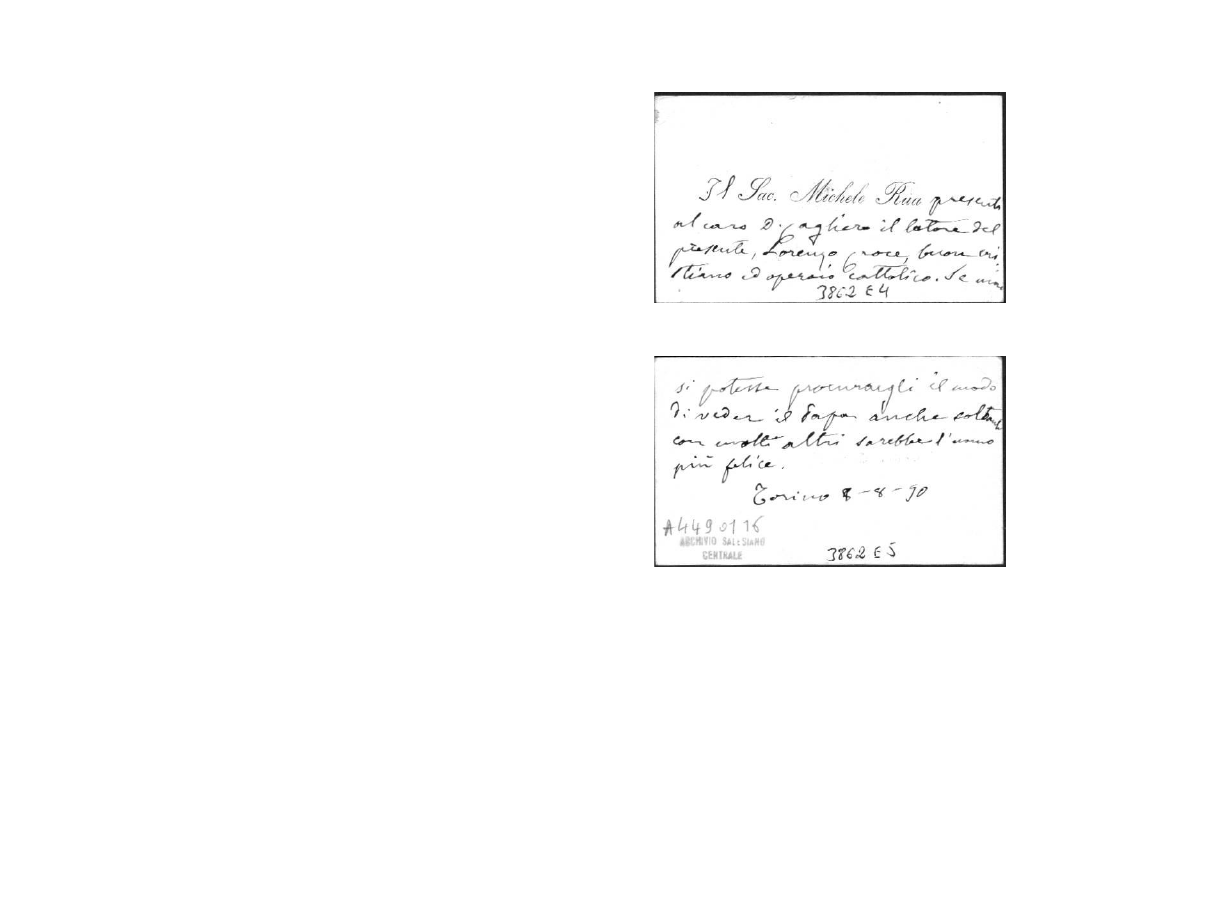 Il Sac. Michele Rua presenta
al caro D. Cagliero il latore del
presente, Lorenzo Croce, buon cri
stiano ed operaio cattolico. Se mai
3862 E 4
si potesse procurargli il modo
di veder il Papa anche soltanto
con molti altri sarebbe l'uomo
più felice.
Torino 8-8-90
A4490116
ARCHIVIO SALESIANO
CENTRALE
3862 E 5